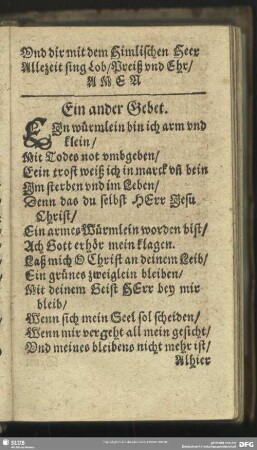 Vnd dir mit dem Himlischen Heer
Allezeit sing Lob/Preiß vnd Ehr/
A M E N
Ein ander Gebet.
EIn würmlein bin ich arm vnd
klein/
Mit Todes not vmbgeben/
Kein trost weiß ich in marck vñ bein
Im sterben vnd im Leben/
Denn das du selbst HErr Jesu
Christ/
Ein armes Würmlein worden bist/
Ach Gott erhör mein klagen.
Laß mich O Christ an deinem Leib/
Ein grünes zweiglein bleiben/
Mit deinem Geist HErr bey mir
bleib/
Wenn sich mein Seel sol scheiden/
Wenn mir vergeht all mein gesicht/
Vnd meines bleibens nicht mehr ist/
Alhier
SLUB
DFG